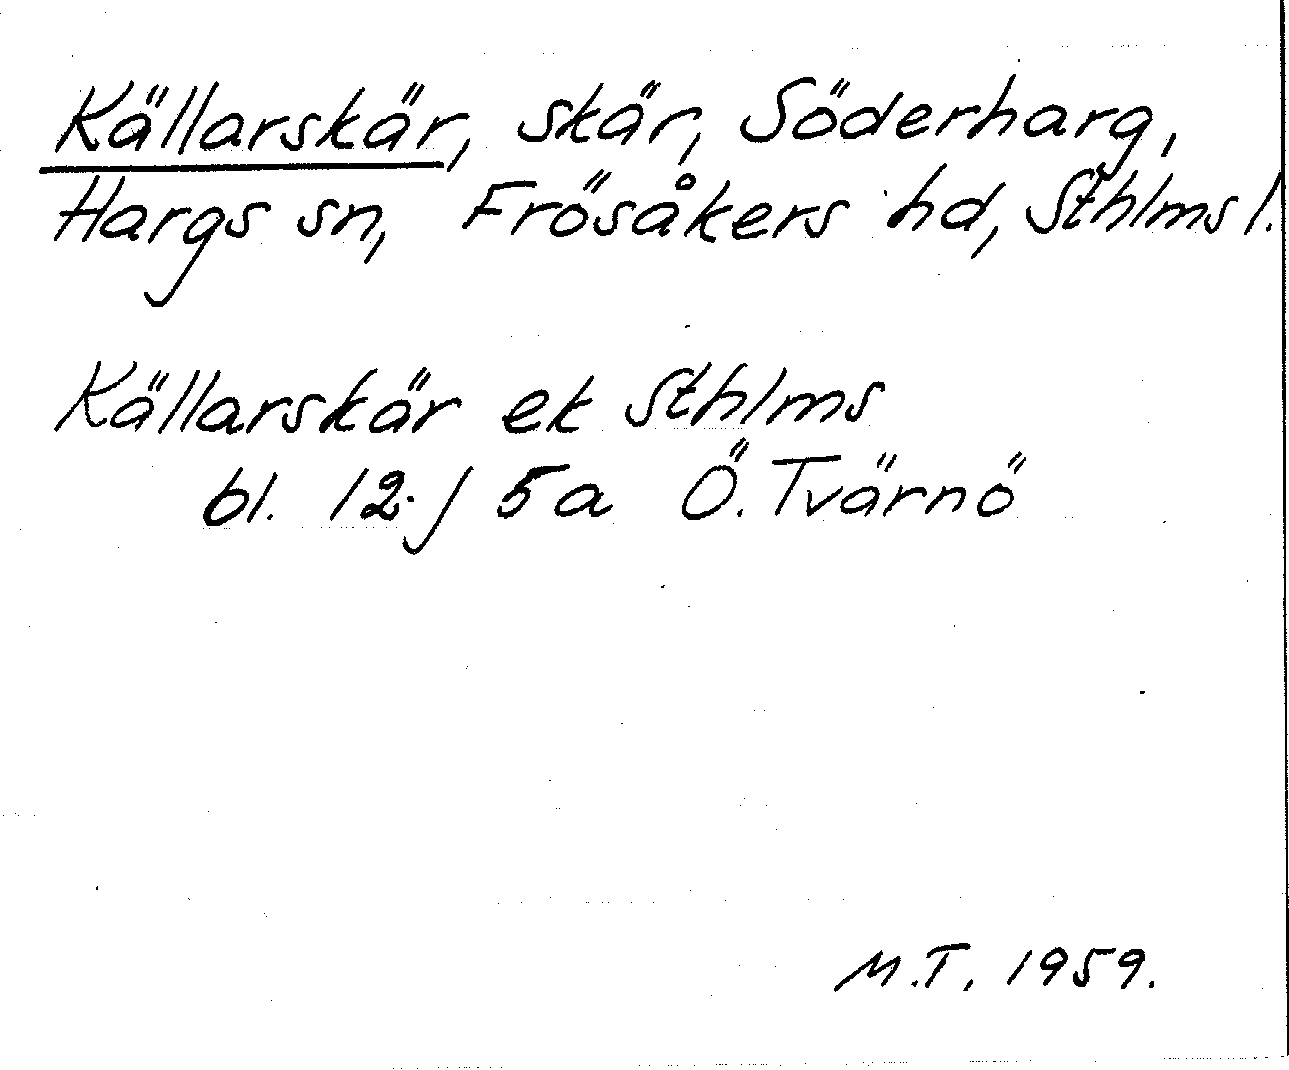 Källarskär, skär, Söderharg,
Hargs sn, Frösåkers hd, Sthlms l.
Källarskär ek Sthlms
bl. 12 j 5a Ö. Tvärnö
M.T. 1959.